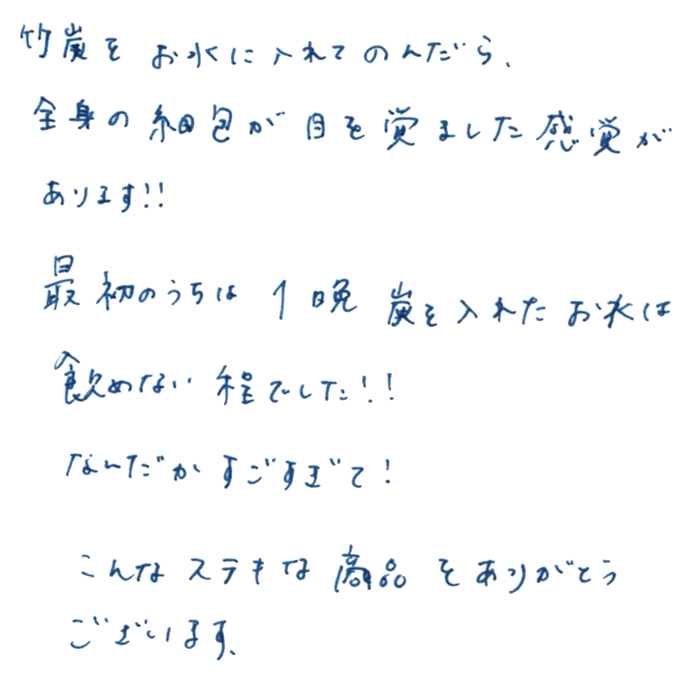 竹炭を お水に入れてのんだら、
全身の細包が目を覚ました感覚が
あります!!
最初のうちは 1晩 炭を入れたお水は
飲めない程でした!!
なんだかすごすぎて!
こんなステキな商品をありがとう
ございます、